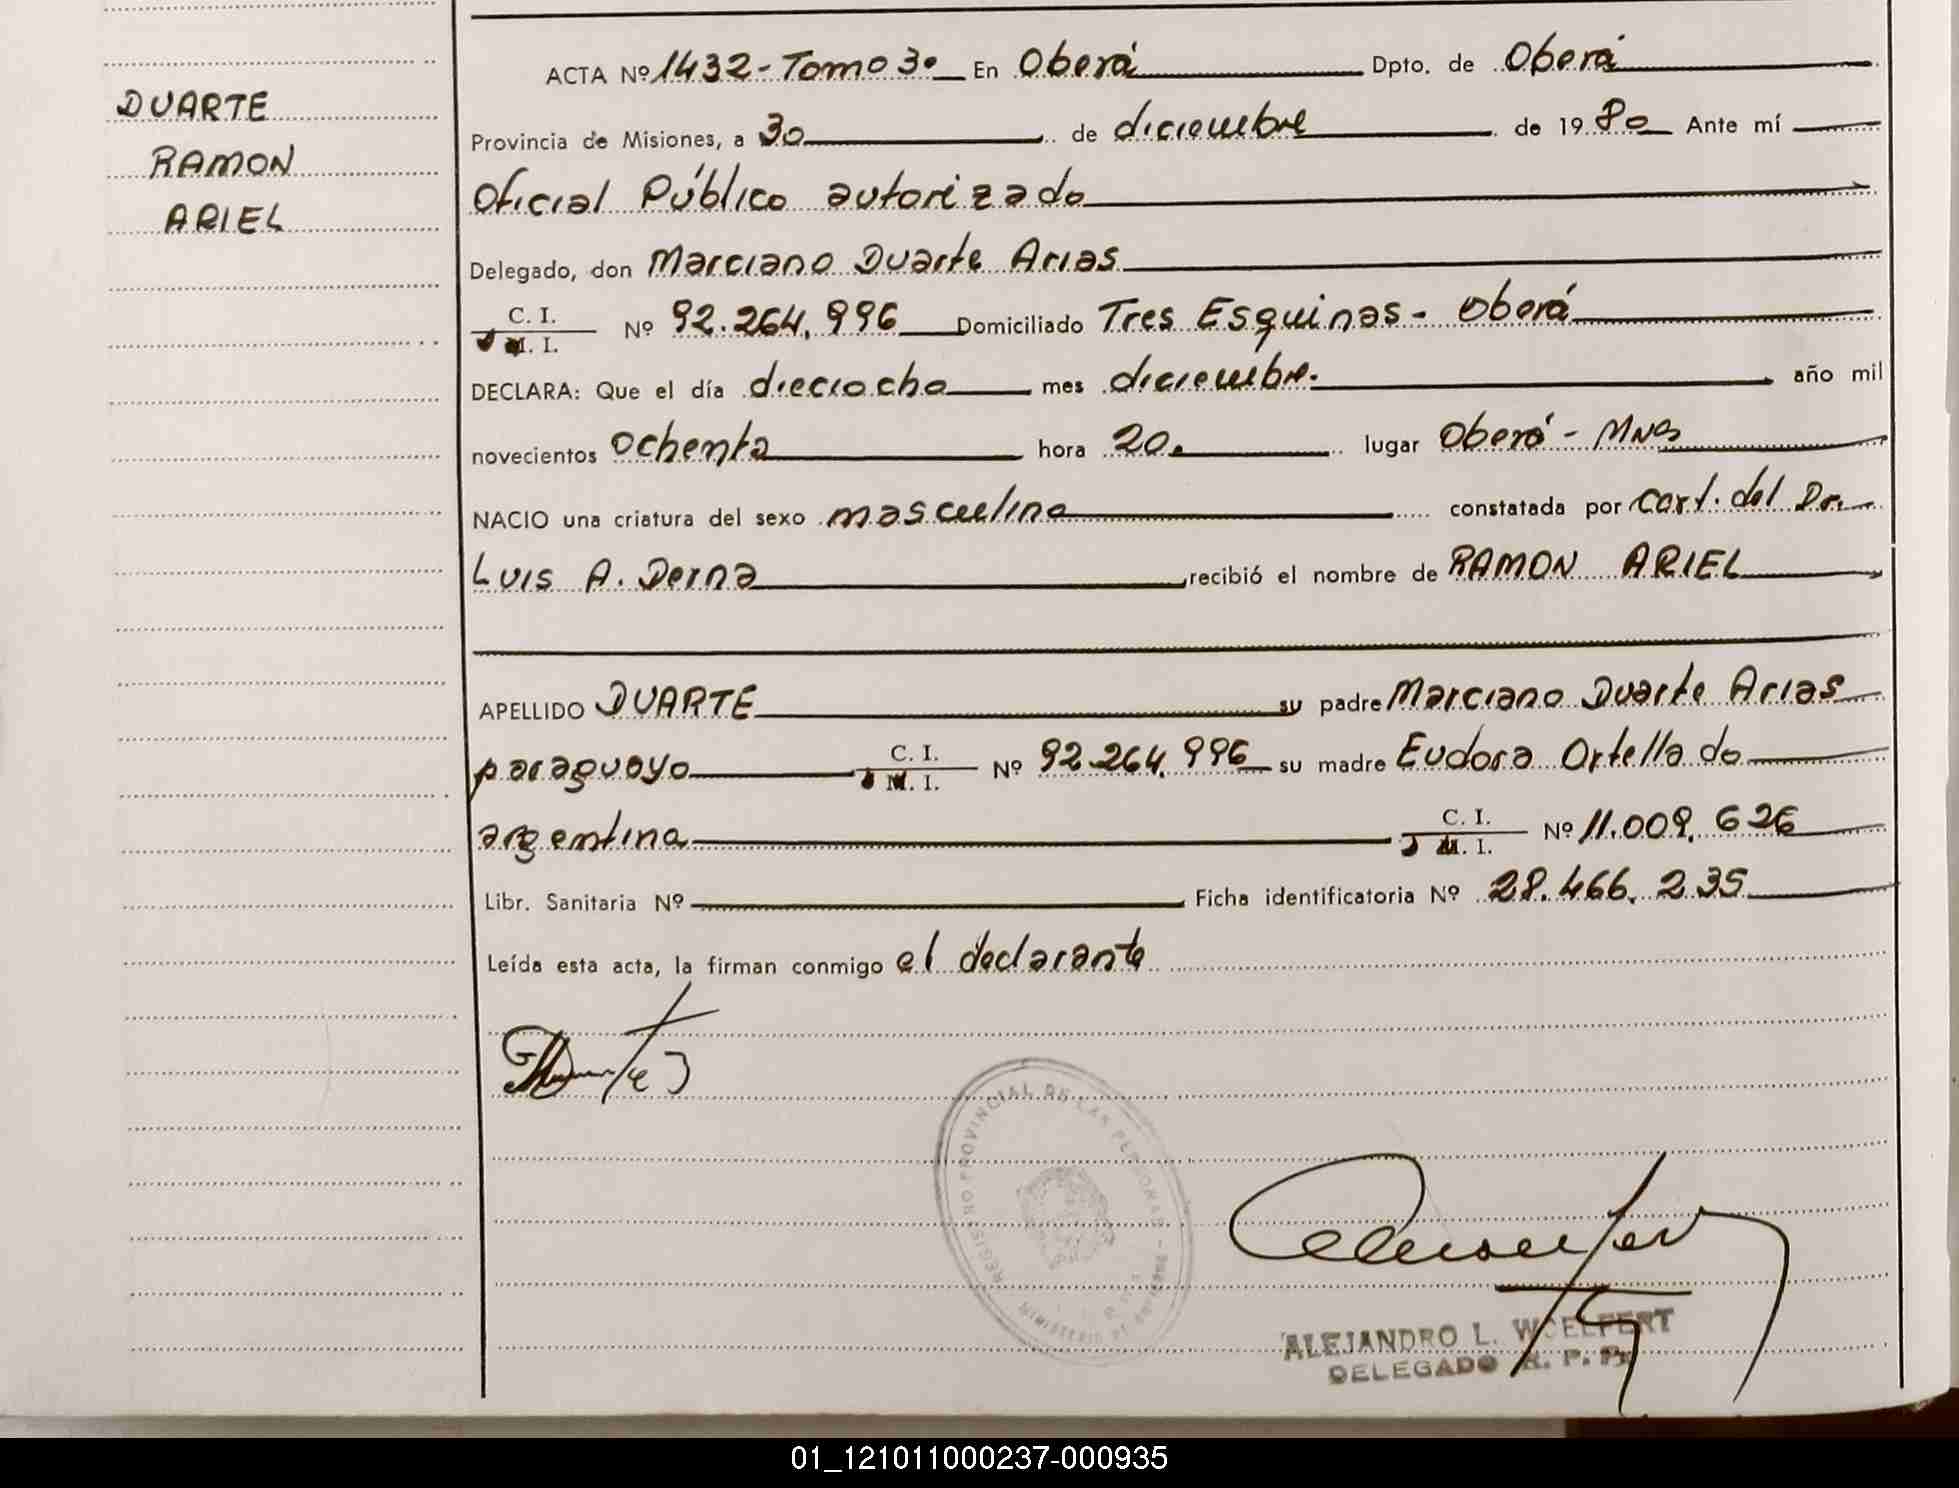 DUARTE
RAMON
ARIEL
ACTA Nº 1432-Tomo 3º En Oberá Dpto. de Oberá
Provincia de Misiones, a 30 de diciembre de 1980 Ante mí
Oficial Público autorizado
Delegado, don Marciano Duarte Arias
C. I.
M. I.
Nº 92.264.996 Domiciliado Tres Esquinas - Oberá
DECLARA: Que el día dieciocho mes diciembre. año mil
novecientos ochenta hora 20. lugar Oberá - Mnes
NACIO una criatura del sexo masculino constatada por cert. del Dr.
Luis A. Derna recibió el nombre de RAMON ARIEL
APELLIDO DUARTE su padre Marciano Duarte Arias
paraguayo C. I. M. I. Nº 92.264.996 su madre Eudora Ortellado
argentina C. I. M. I. Nº 11.009.626
Libr. Sanitaria Nº Ficha identificatoria Nº 28.466.235
Leída esta acta, la firman conmigo el declarante
REGISTRO PROVINCIAL DE LAS PERSONAS
MINISTERIO DE
ALEJANDRO L. WOELFERT
DELEGADO R. P. P.
01_121011000237-000935